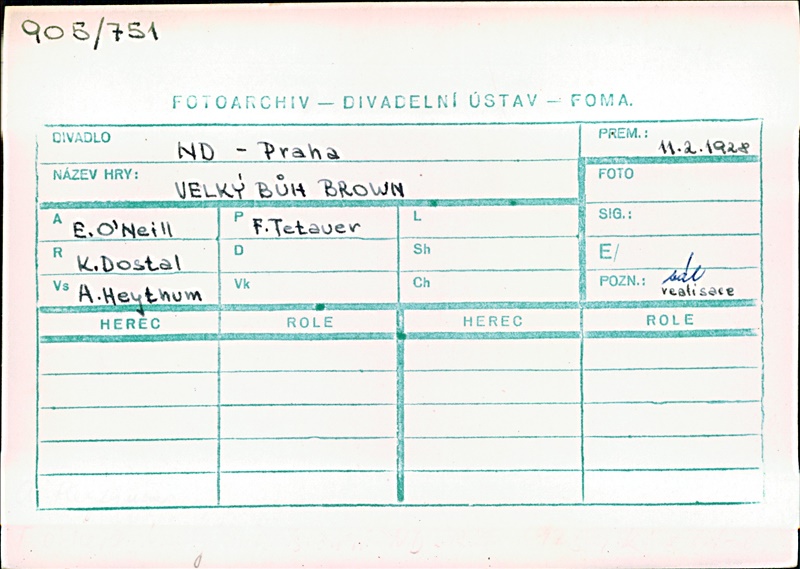 905/751
FOTOARCHIV — DIVADELNÍ ÚSTAV — FOMA.
DIVADLO ND - Praha PREM.: 11.2.1928
NÁZEV HRY: VELKÝ BŮH BROWN FOTO
A E.O'Neill P F.Tetauer L SIG.:
R K.Dostal D Sh E/
Vs A.Heythum Vk Ch POZN.: sál
realisace
HEREC ROLE HEREC ROLE